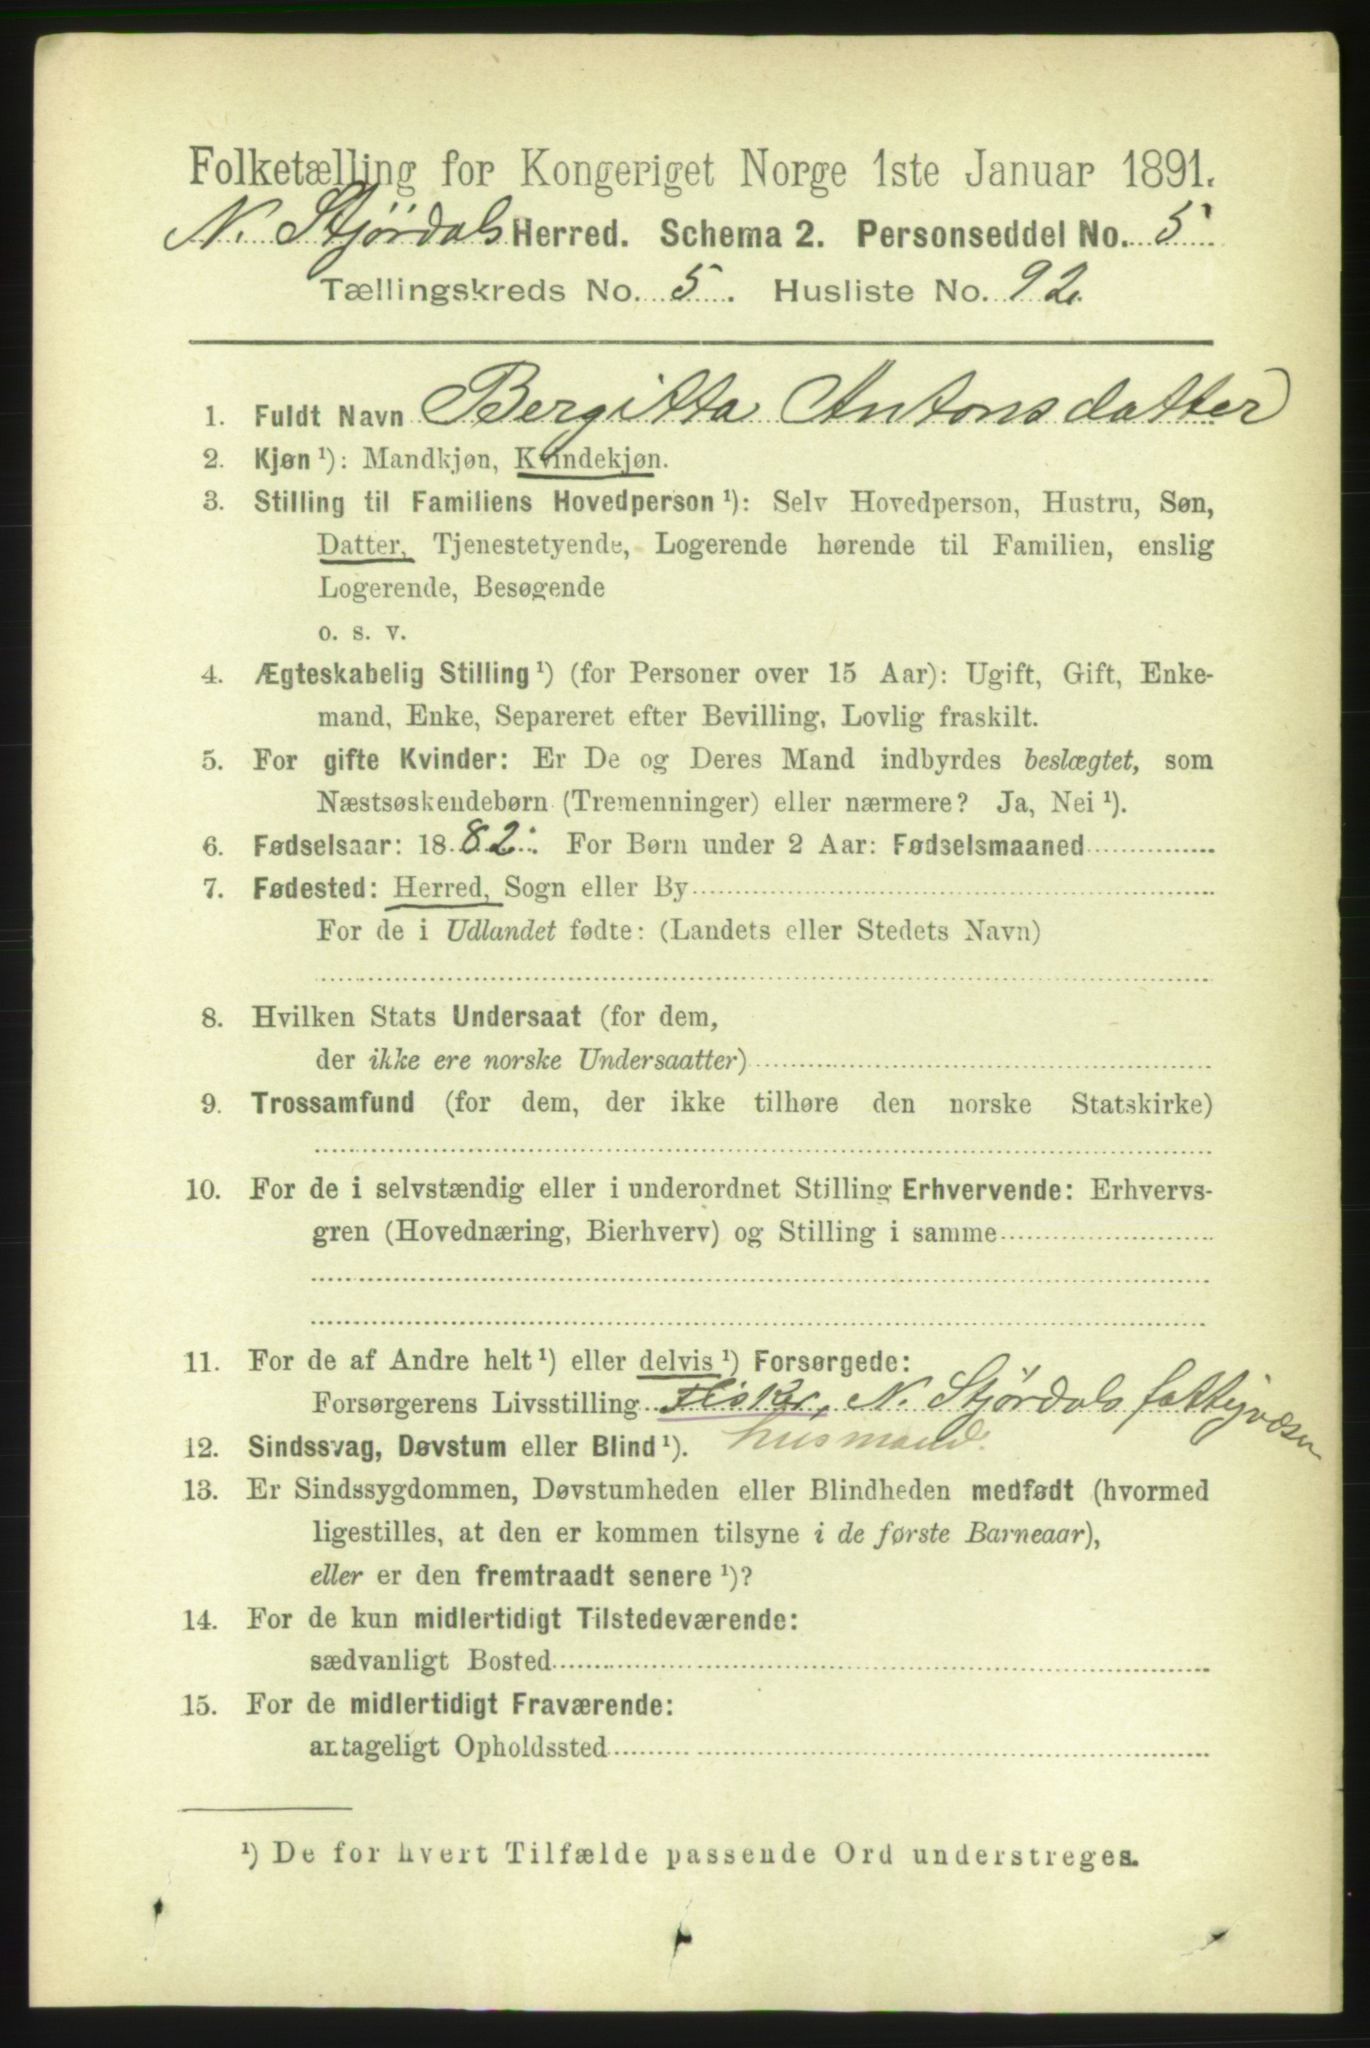 Folketælling for Kongeriget Norge 1ste Januar 1891.
N. Stjördals Herred. Schema 2. Personseddel No. 5
Tællingskreds No. 5. Husliste No. 92.
1. Fuldt Navn Bergitta Antonsdatter
2. Kjøn ¹): Mandkjøn, Kvindekjøn.
3. Stilling til Familiens Hovedperson ¹): Selv Hovedperson, Hustru, Søn,
Datter, Tjenestetyende, Logerende hørende til Familien, enslig
Logerende, Besøgende
o. s. v.
4. Ægteskabelig Stilling ¹) (for Personer over 15 Aar): Ugift, Gift, Enke-
mand, Enke, Separeret efter Bevilling, Lovlig fraskilt.
5. For gifte Kvinder: Er De og Deres Mand indbyrdes beslægtet, som
Næstsøskendebørn (Tremenninger) eller nærmere? Ja, Nei ¹).
6. Fødselsaar: 1882. For Børn under 2 Aar: Fødselsmaaned
7. Fødested: Herred, Sogn eller By
For de i Udlandet fødte: (Landets eller Stedets Navn)
8. Hvilken Stats Undersaat (for dem,
der ikke ere norske Undersaatter)
9. Trossamfund (for dem, der ikke tilhøre den norske Statskirke)
10. For de i selvstændig eller i underordnet Stilling Erhvervende: Erhvervs-
gren (Hovednæring, Bierhverv) og Stilling i samme
11. For de af Andre helt ¹) eller delvis ¹) Forsørgede:
Forsørgerens Livsstilling Fisker, N. Stjördals fattigvæsen
husmand.
12. Sindssvag, Døvstum eller Blind ¹).
13. Er Sindssygdommen, Døvstumheden eller Blindheden medfødt (hvormed
ligestilles, at den er kommen tilsyne i de første Barneaar),
eller er den fremtraadt senere ¹)?
14. For de kun midlertidigt Tilstedeværende:
sædvanligt Bosted
15. For de midlertidigt Fraværende:
antageligt Opholdssted
¹) De for hvert Tilfælde passende Ord understreges.